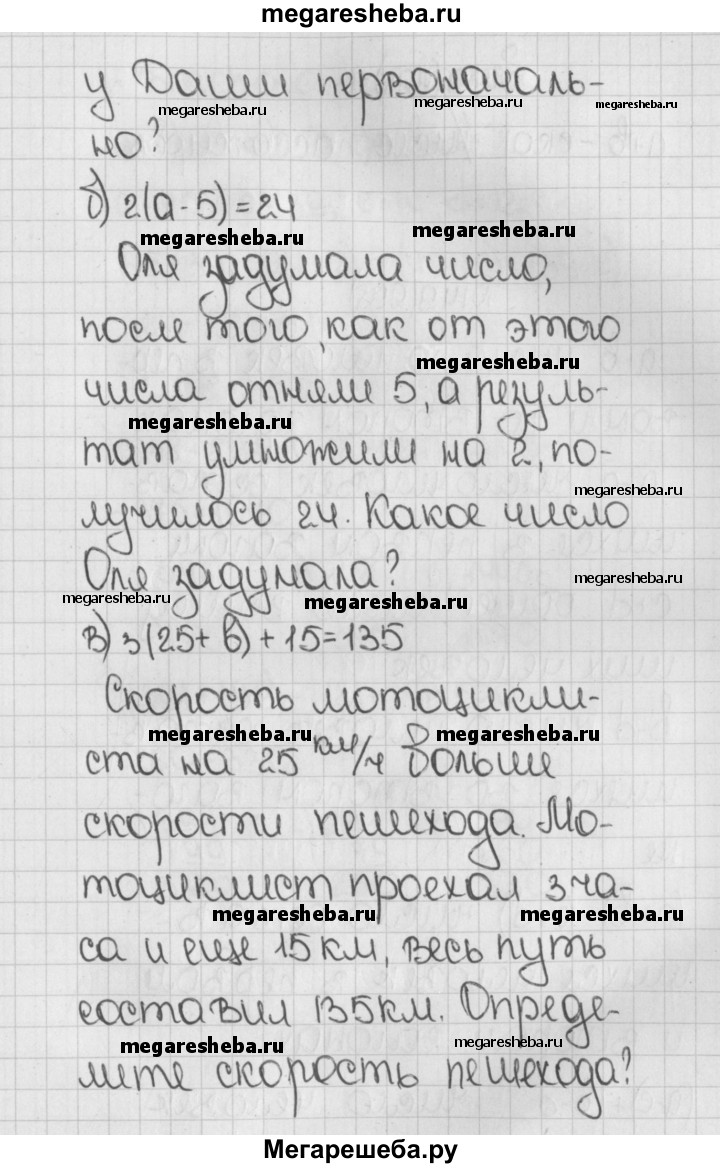 megaresheba.ru
у Даши первоначаль-
megaresheba.ru megaresheba.ru megaresheba.ru
но?
б) 2(а - 5) = 24
megaresheba.ru megaresheba.ru
Оля задумала число,
после того, как от этого
megaresheba.ru
числа отняли 5, а резуль-
megaresheba.ru
тат умножили на 2, по-
megaresheba.ru
лучилось 24. Какое число
Оля задумала?
megaresheba.ru
megaresheba.ru megaresheba.ru
в) 3(25 + в) + 15 = 135
Скорость мотоцикли-
megaresheba.ru megaresheba.ru
ста на 25 км/ч больше
скорости пешехода. Мо-
тоциклист проехал 3 ча-
megaresheba.ru megaresheba.ru
са и еще 15 км, весь путь
составил 135 км. Опреде-
megaresheba.ru megaresheba.ru
лите скорость пешехода?
Мегарешеба.ру